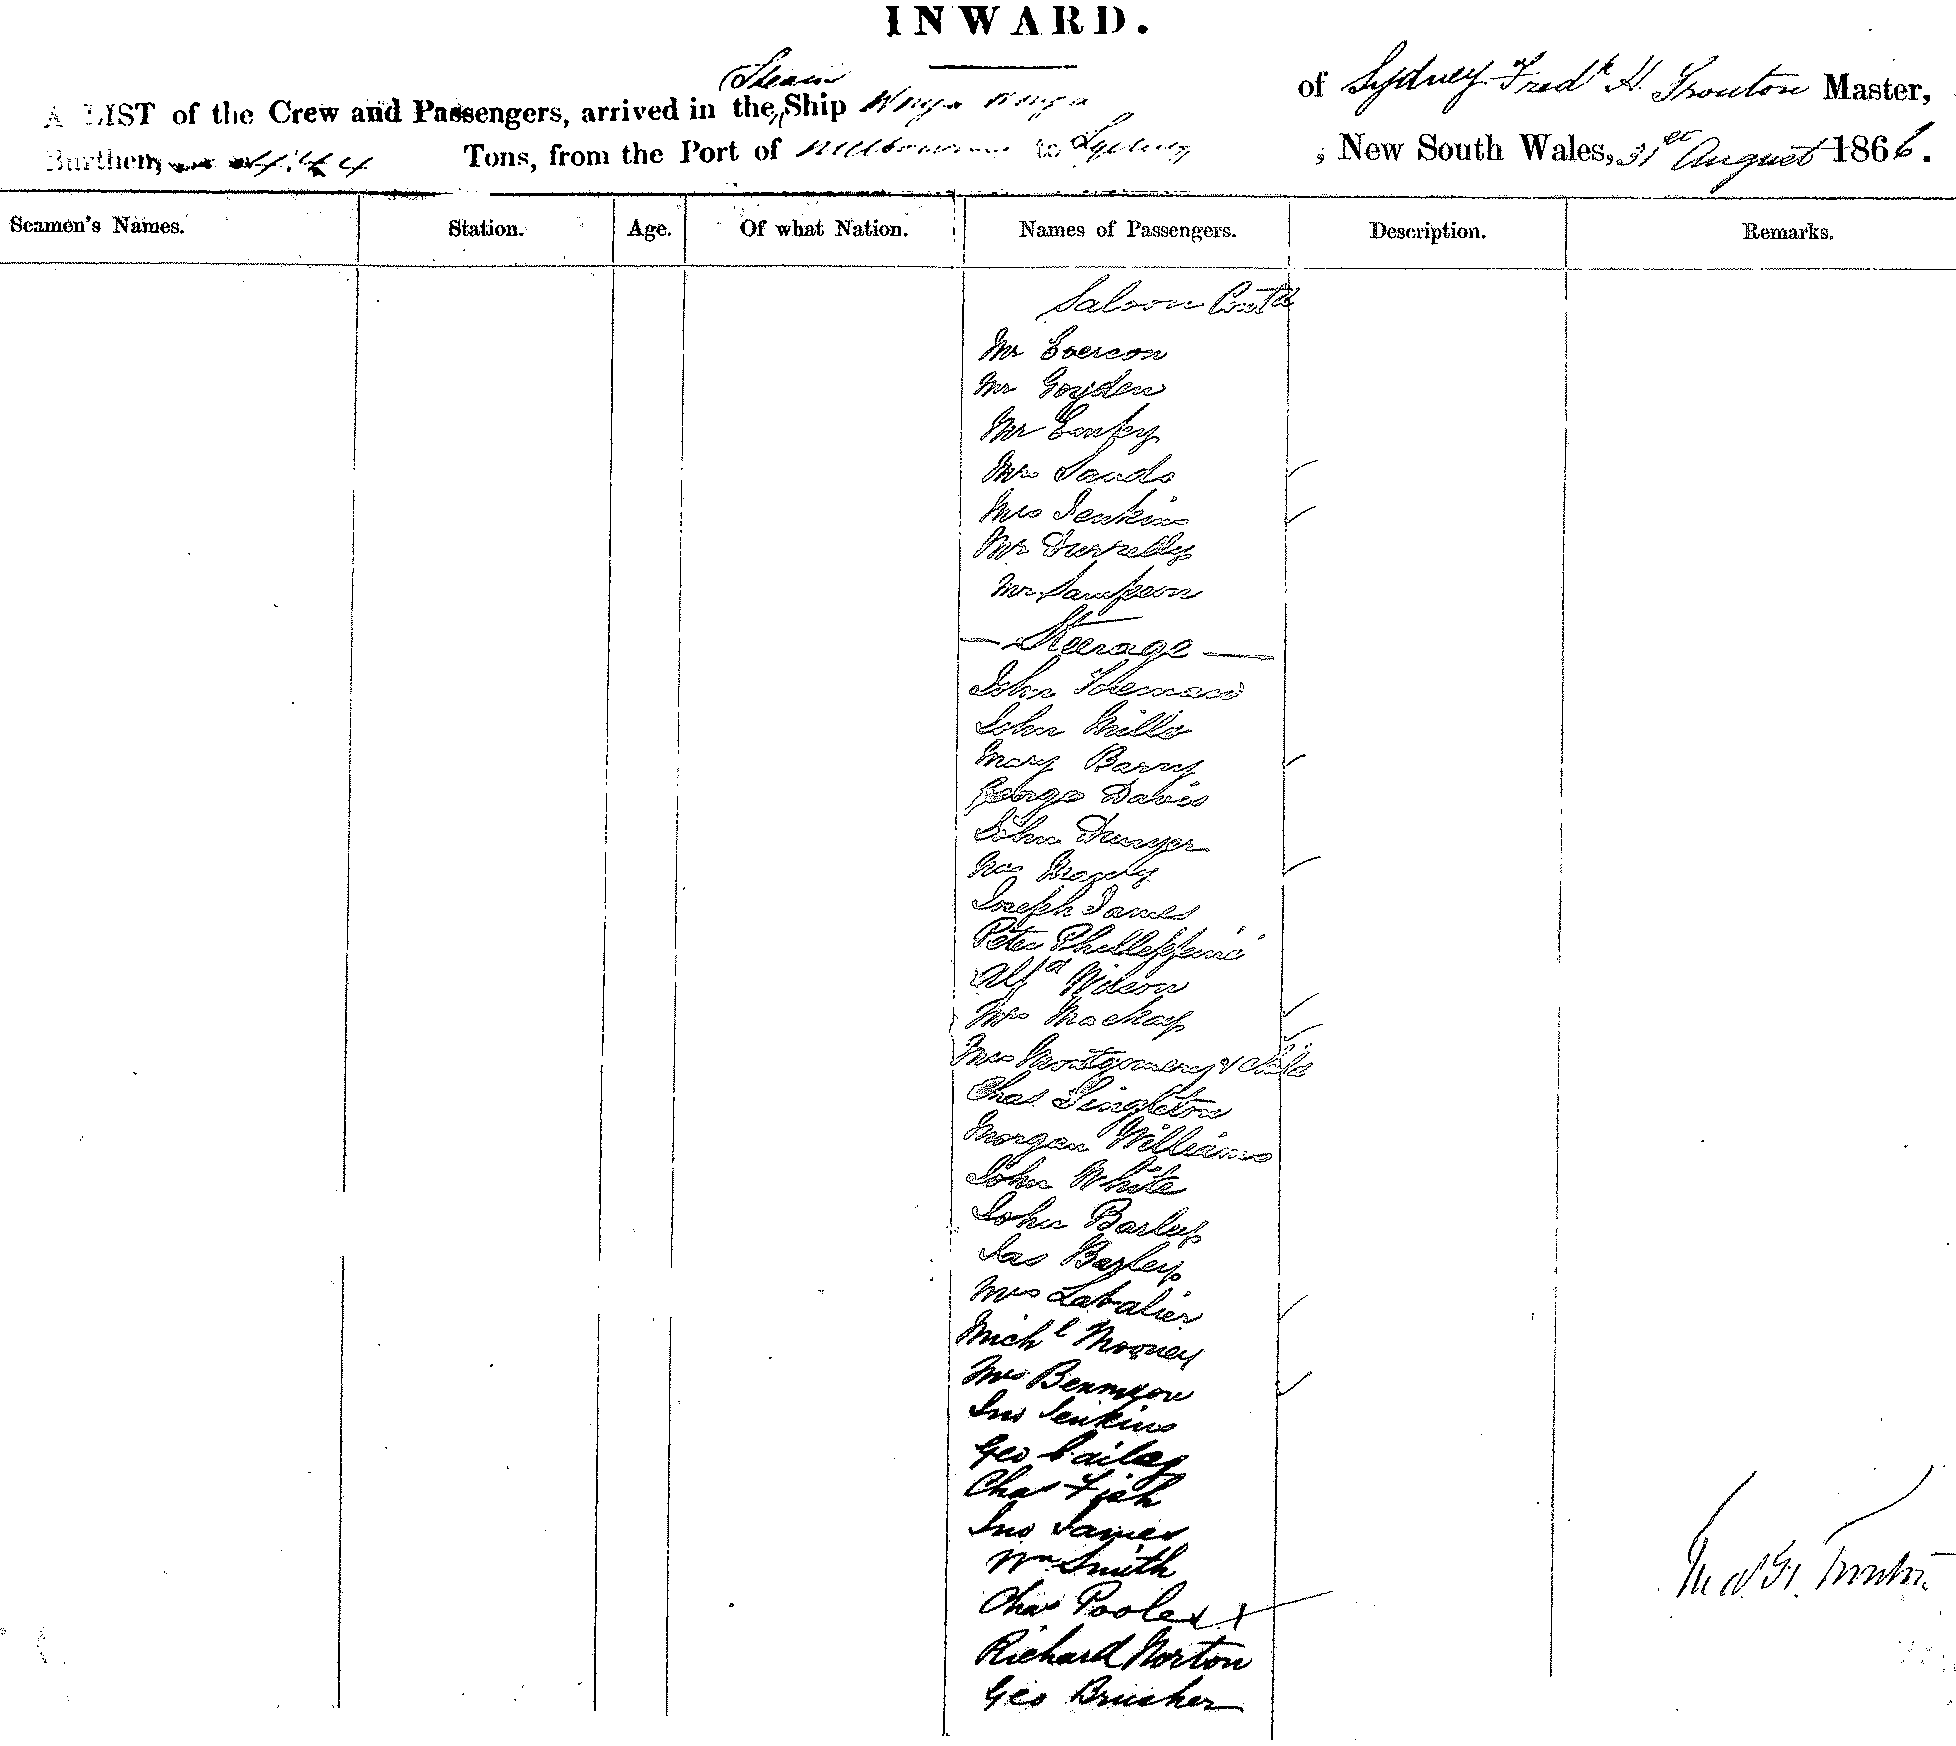 INWARD.
A LIST of the Crew and Passengers, arrived in the Steam Ship Wonga Wonga of Sydney Fredk H. Trouton Master,
Burthen, Tons, from the Port of Melbourne to Sydney, New South Wales, 31st August 1866.
Seamen's Names. Station. Age. Of what Nation. Names of Passengers. Description. Remarks.
Saloon Contd
Mr Evercon
Mr Goyden
Mr
Mrs Sands
Mrs Jenkins
Mr
Mr Sampson
— Steerage —
John
John Mills
Mary Barry
George Davis
John
Mrs
Joseph James
Peter
Alfd Wilson
Mrs Mackay
Mrs Montgomery & Child
Chas Singleton
Morgan Williams
John White
John Barley
Jas Barley
Mrs Labalier
Michl Mooney
Mrs Bennyon
Jno Jenkins
Geo Bailey
Chas Fish
Jno James
Wm Smith
Chas Poole
Richard Norton
Geo Brusher
Fred H. Trouton